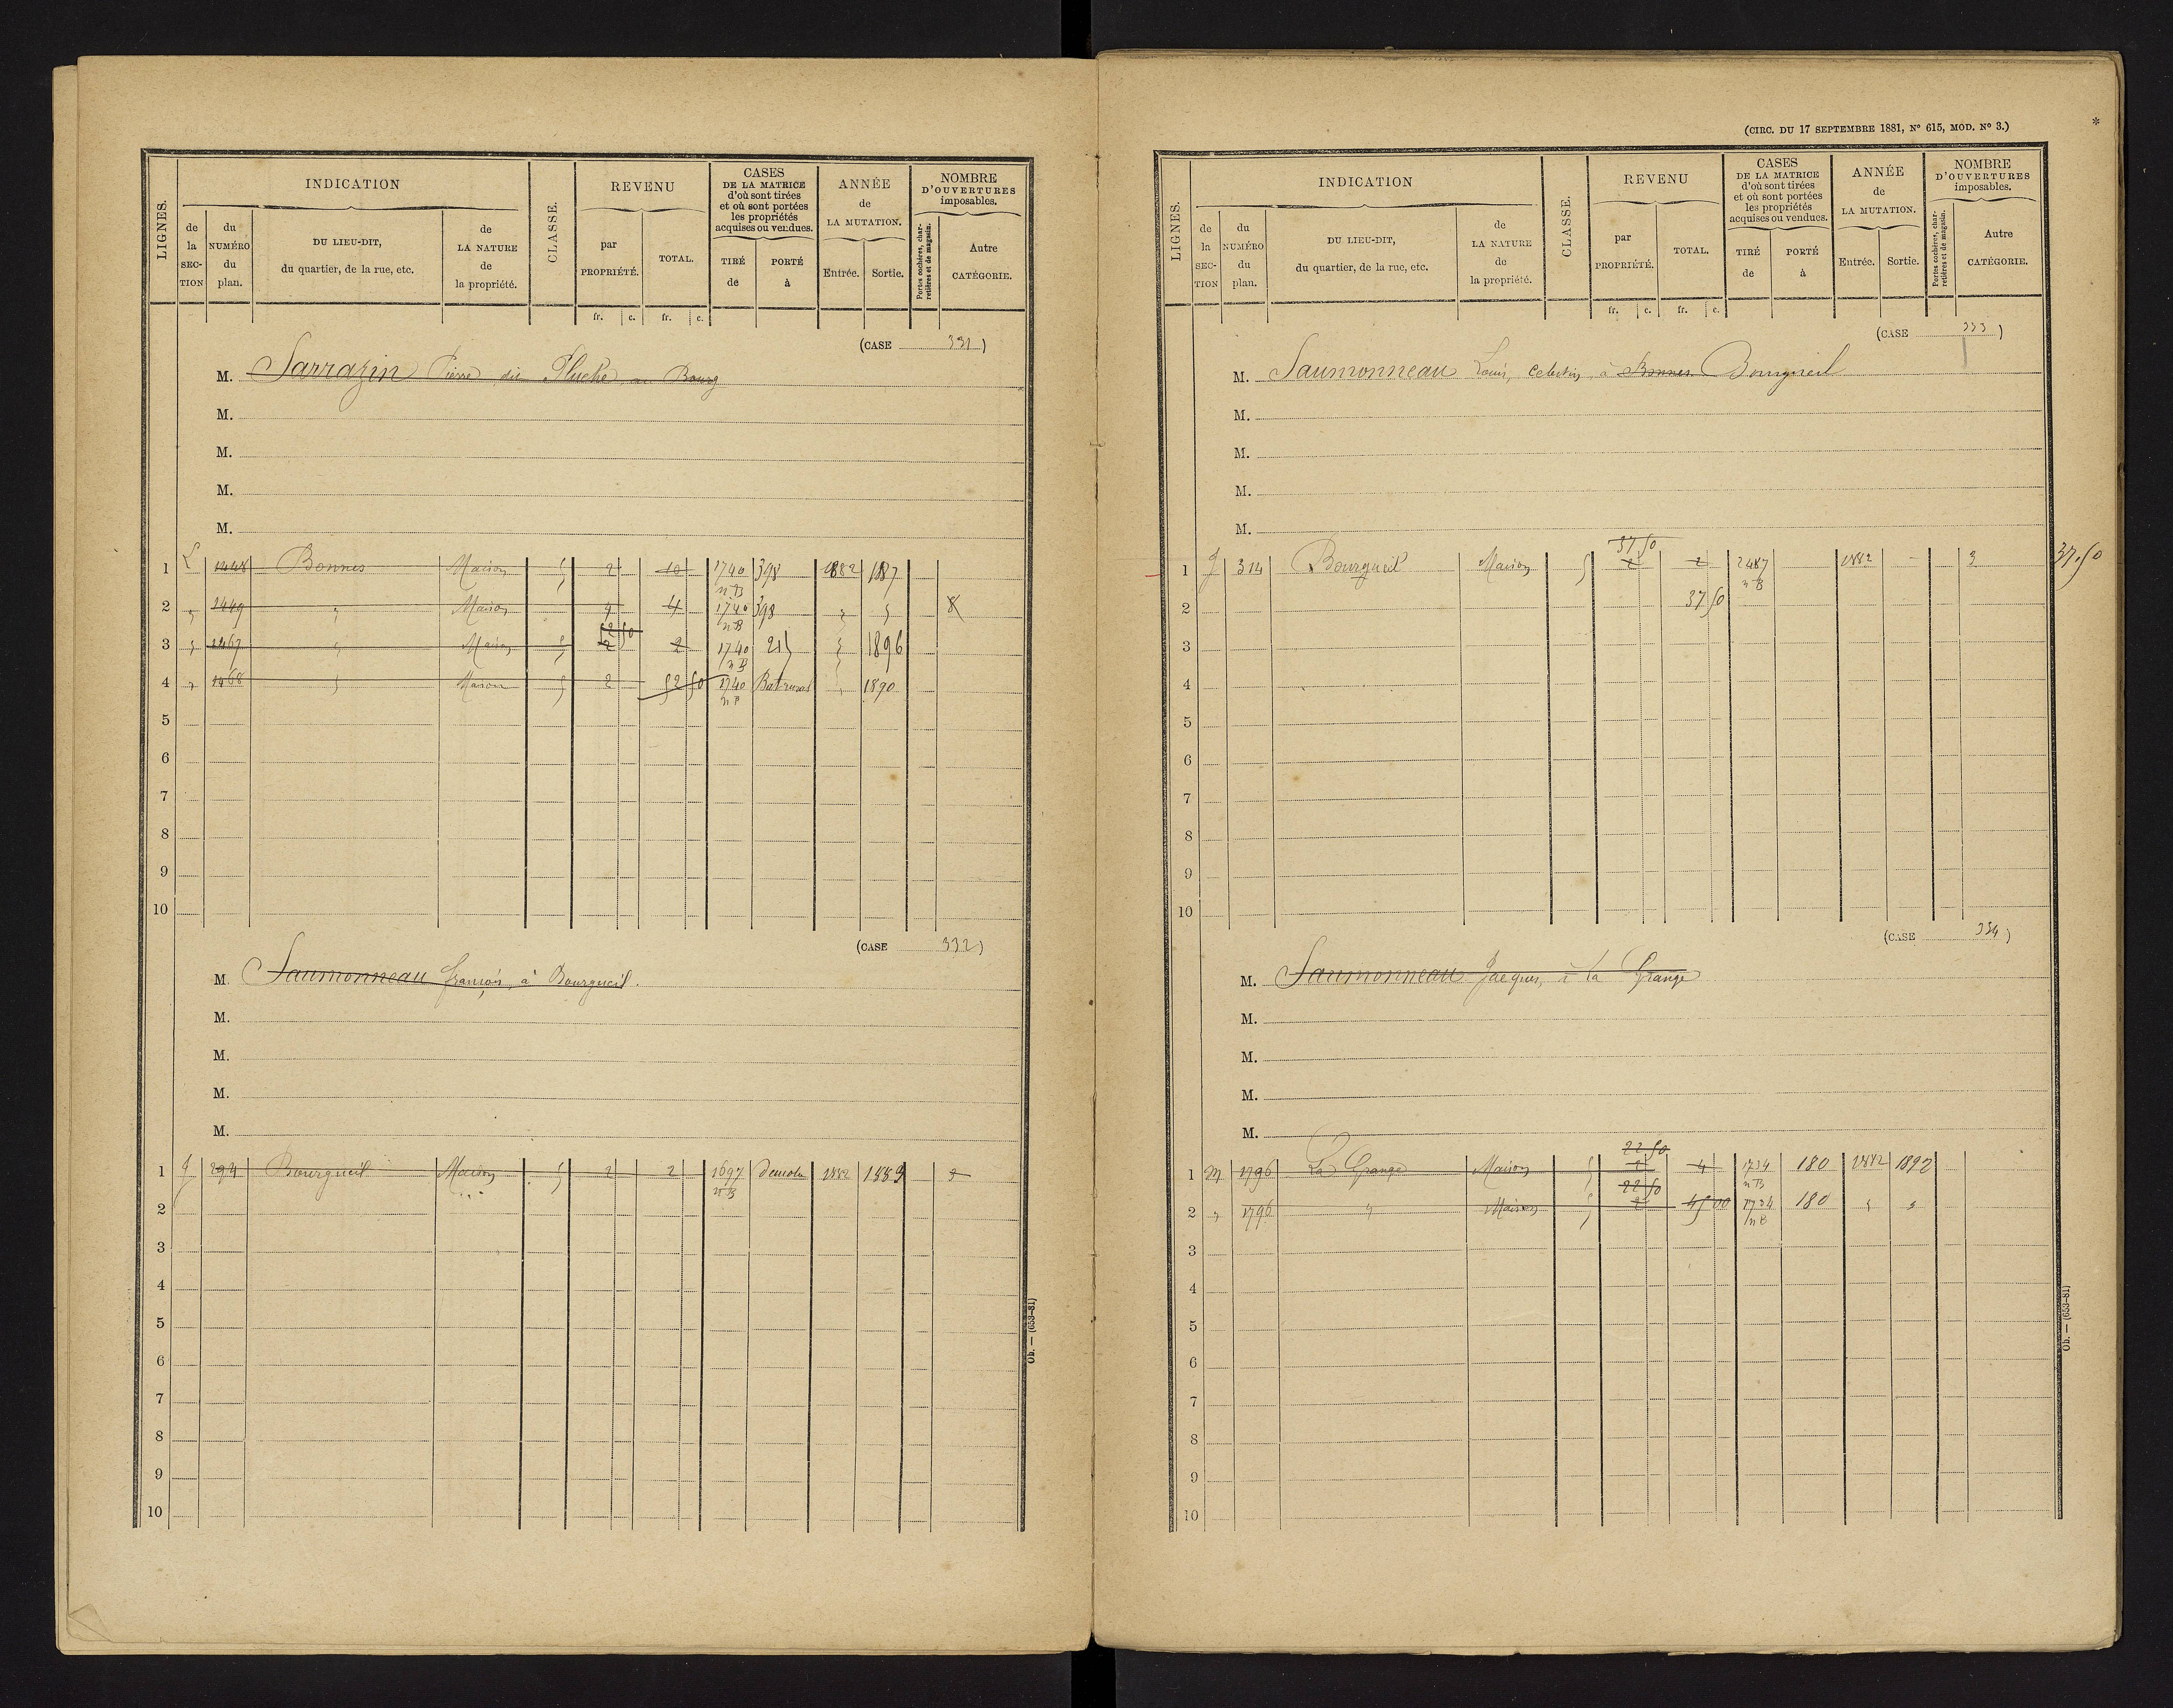 LIGNES.
INDICATION
de la SECTION
du NUMÉRO du plan.
DU LIEU-DIT, du quartier, de la rue, etc.
de LA NATURE de la propriété.
CLASSE.
REVENU
par PROPRIÉTÉ.
TOTAL.
CASES DE LA MATRICE d'où sont tirées et où sont portées les propriétés acquises ou vendues.
TIRÉ de
PORTÉ à
ANNÉE de LA MUTATION.
Entrée. Sortie.
NOMBRE D'OUVERTURES imposables.
Portes cochères, charretières et de magasin.
Autre CATÉGORIE.
fr. c. fr. c.
(CASE 331)
M. Sarrazin Pierre dit Pluche au Bourg
M.
M.
M.
M.
1 L 1448 Bonnes Maison 5 2 10 1740 nB 398 1882 1887
2 " 1449 " Maison 4 4 1740 nB 398 " " 8
52 50
3 " 1467 " Maison " 2 2 1740 nB 215 " 1896
4 " 1468 " Maison 5 2 52 50 1740 nB " 1890
5
6
7
8
9
10
(CASE 332)
M. Saumonneau françois, à Bourgueil.
M.
M.
M.
M.
1 J 294 Bourgueil Maison 5 2 2 1697 nB Demoln 1882 1889 2
2
3
4
5
6
7
8
9
10
Ob. — (653-81)
(CIRC. DU 17 SEPTEMBRE 1881, N° 615, MOD. N° 3.)
*
LIGNES.
INDICATION
de la SECTION
du NUMÉRO du plan.
DU LIEU-DIT, du quartier, de la rue, etc.
de LA NATURE de la propriété.
CLASSE.
REVENU
par PROPRIÉTÉ.
TOTAL.
CASES DE LA MATRICE d'où sont tirées et où sont portées les propriétés acquises ou vendues.
TIRÉ de
PORTÉ à
ANNÉE de LA MUTATION.
Entrée. Sortie.
NOMBRE D'OUVERTURES imposables.
Portes cochères, charretières et de magasin.
Autre CATÉGORIE.
fr. c. fr. c.
(CASE 333)
M. Saumonneau Louis, Celestin, à Bonnes Bourgueil
M.
M.
M.
M.
37 50
1 J 314 Bourgueil Maison 5 2 2 2487 nB 1882 3 37.50
2 37 50
3
4
5
6
7
8
9
10
(CASE 334)
M. Saumonneau Jacques, à la Grange
M.
M.
M.
M.
22 50
1 M 1796 La Grange Maison 5 2 4 1734 nB 180 1882 1892
22 50
2 " 1796 " Maison 5 2 45 00 1734 nB 180 " "
3
4
5
6
7
8
9
10
Ob. — (653-81)